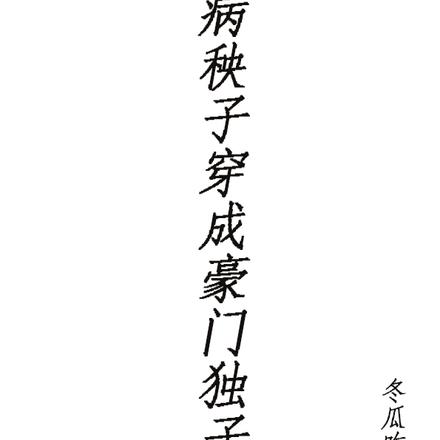 病秧子穿成豪门独子
冬瓜